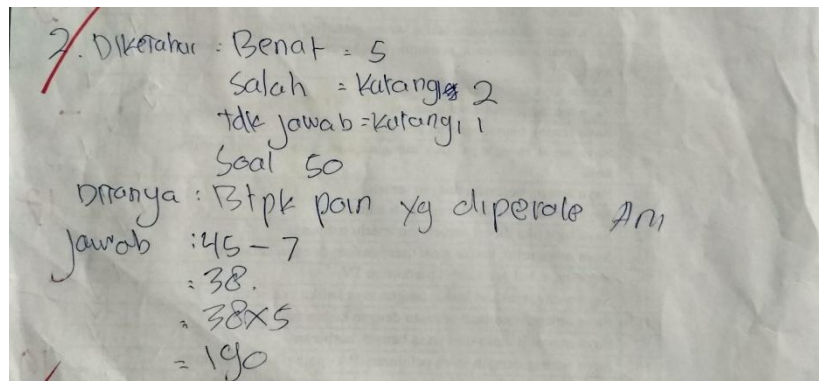 2. Diketahui : Benar = 5
Salah = kurangi 2
tdk jawab = kurangi 1
Soal 50
Ditanya : Brpk poin yg diperole Ani
Jawab : 45 - 7
= 38.
= 38x5
= 190